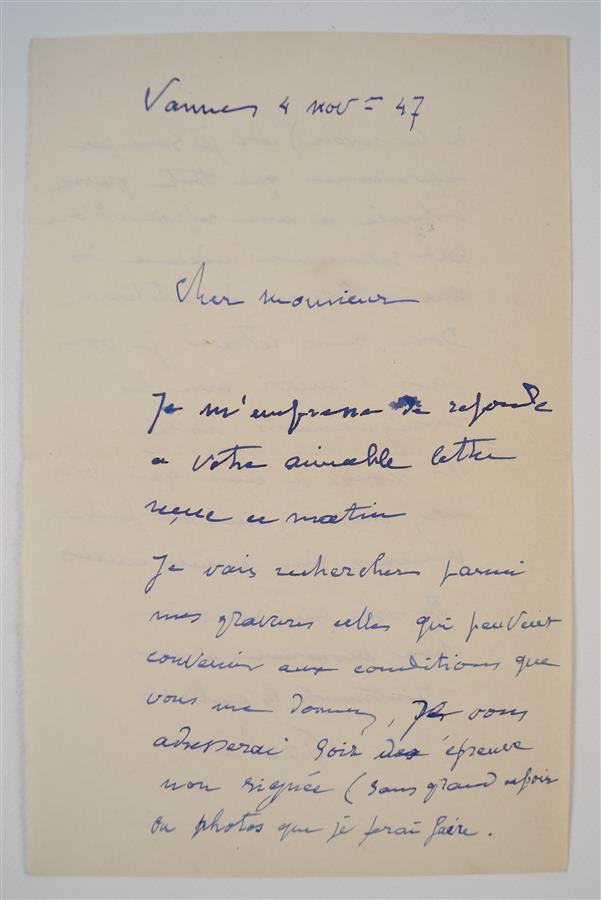 Vannes 4 nov = 47
Cher monsieur
Je m'empresse de reponde
a votre aimable lettre
reçue ce matin
Je vais rechercher parmi
mes gravures celles qui peuvent
convenir aux conditions que
vous me donnez, Je vous
adresserai soit des épreuve
non signée (sans grand espoir
ou photos que je ferai faire.